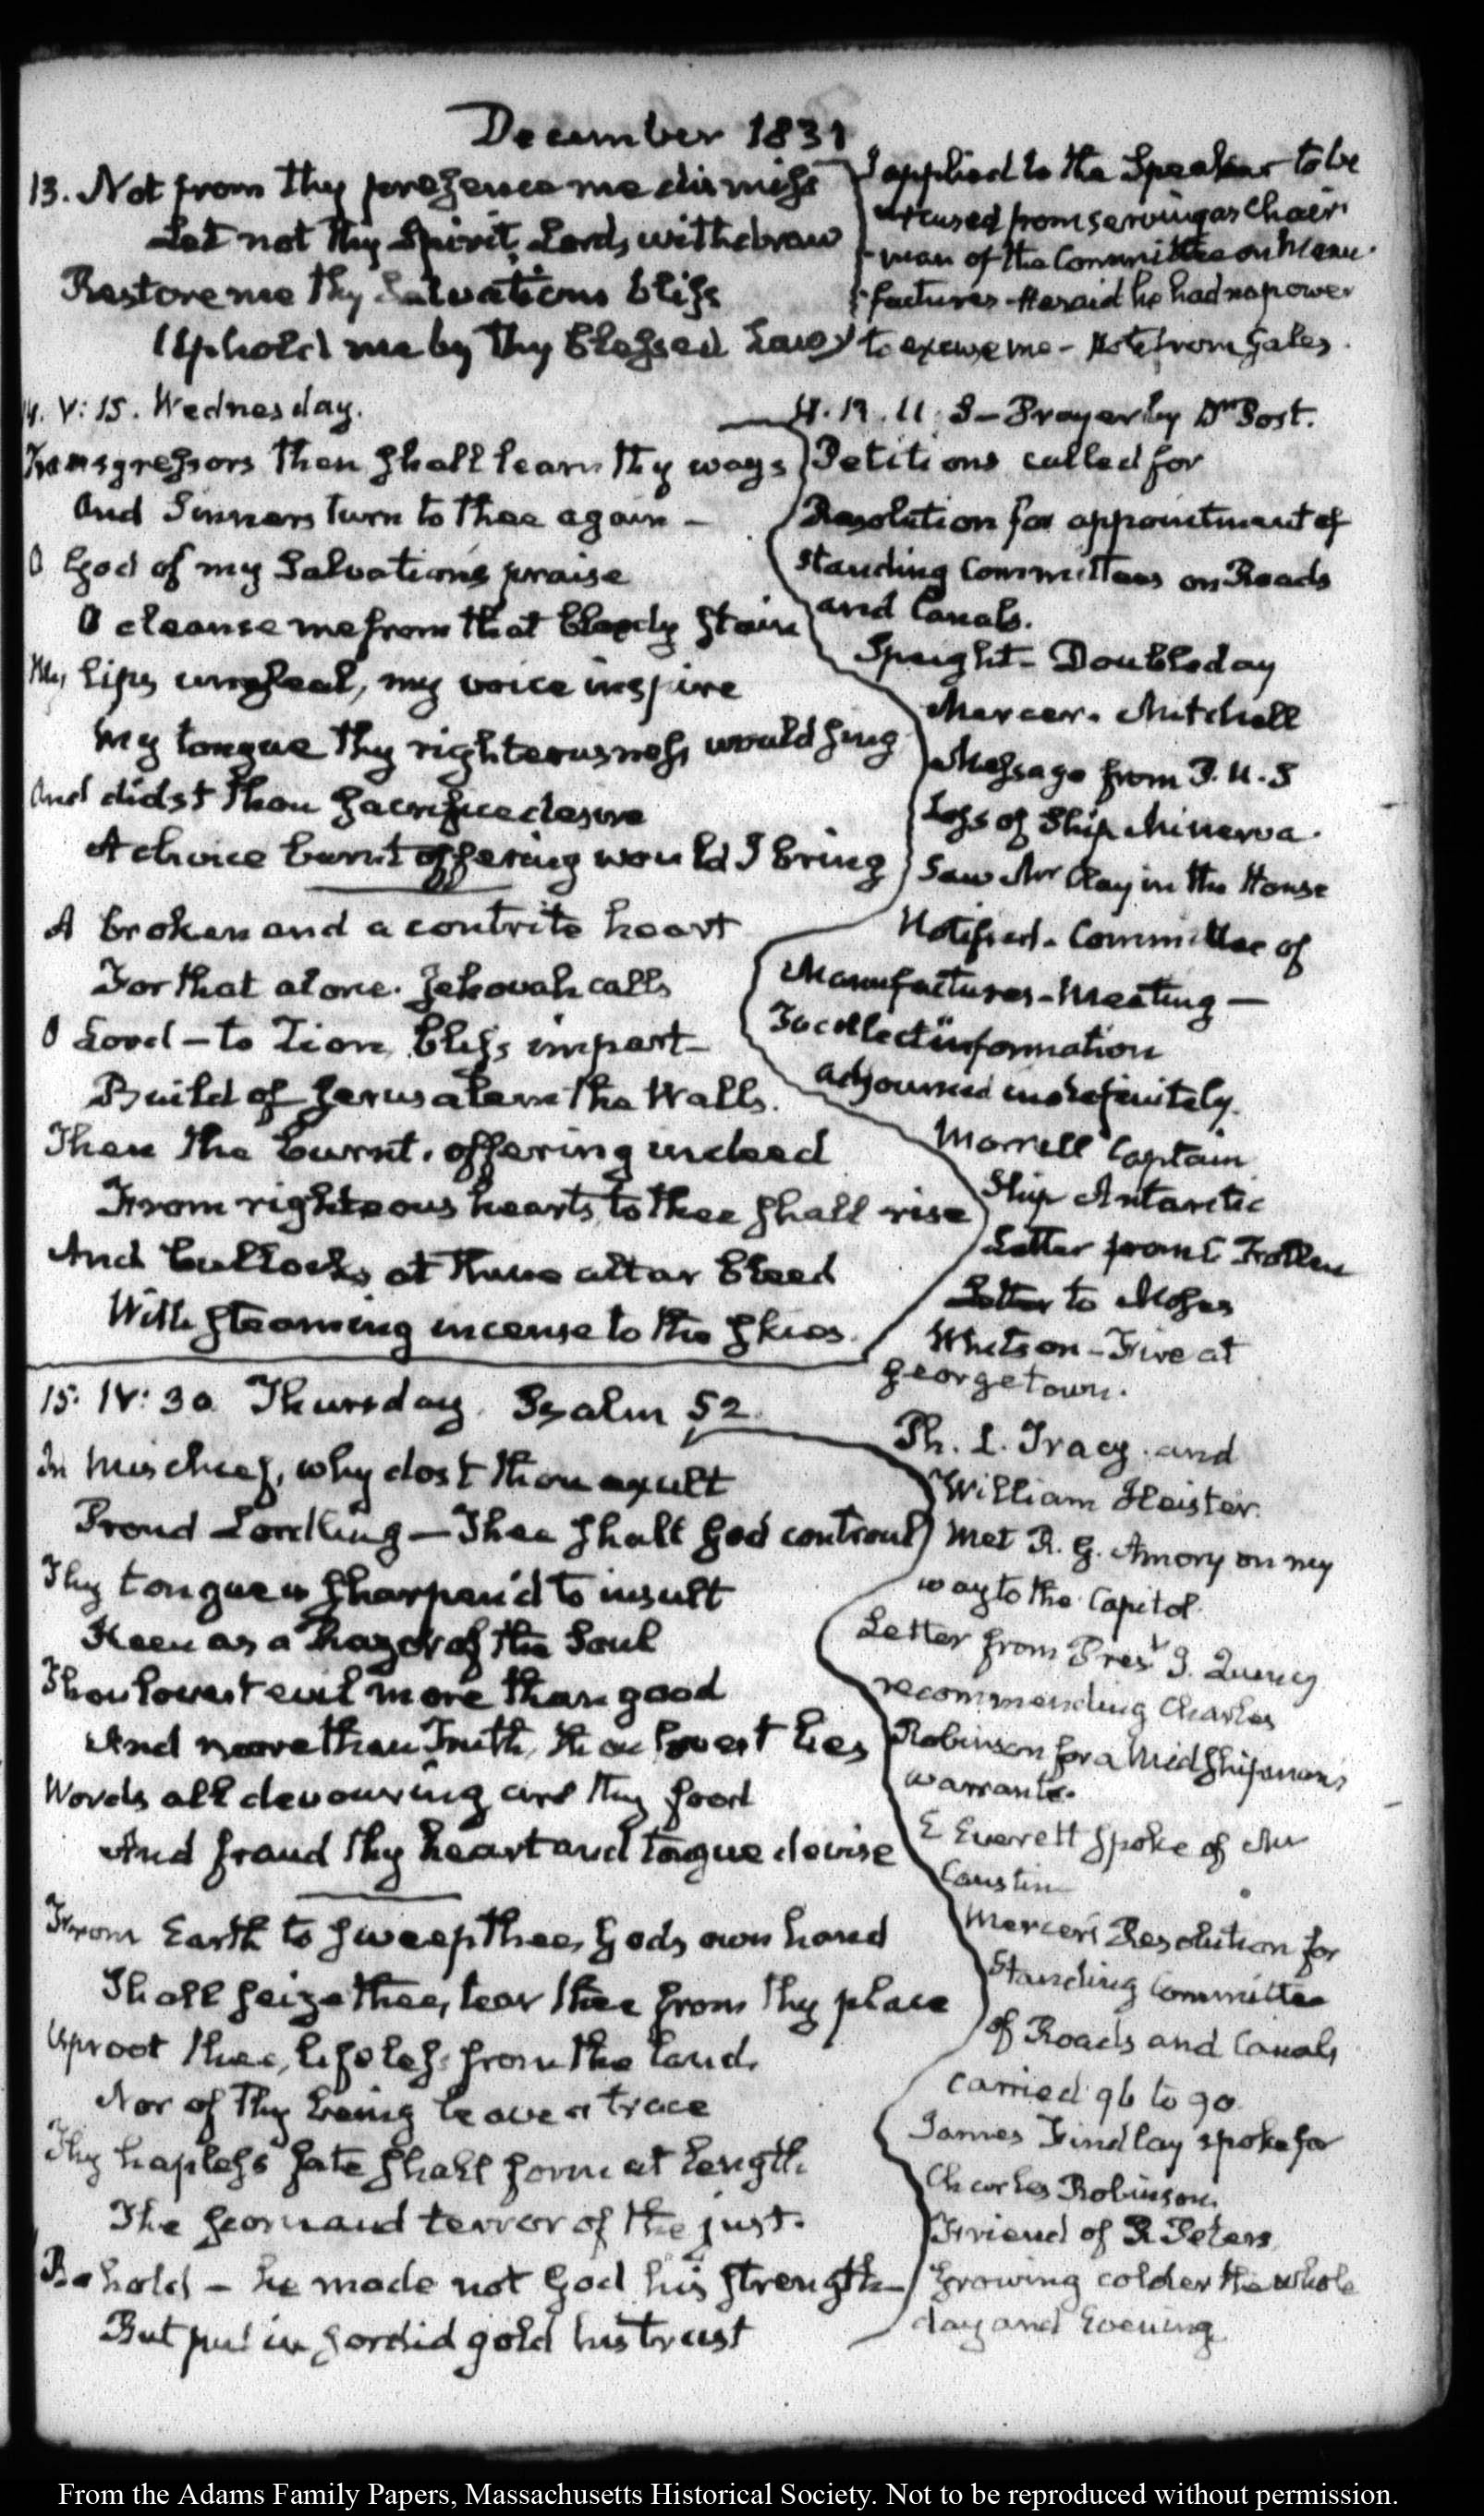 December 1831
13. Not from thy presence me dismiss
Let not thy Spirit, Lord, withdraw
Restore me thy Salvations bliss
Uphold me by thy blessed Law
I applied to the Speaker to be
excused from serving as Chair
man of the Committee on Manu
factures. He said he had no power
to excuse me - Note from Gales.
14. V: 15. Wednesday.
Transgressors then shall learn thy ways
And Sinners turn to thee again -
O God of my Salvations praise
O cleanse me from that bloody stain
My lips unseal, my voice inspire
My tongue thy righteousness would sing
And didst thou sacrifice desire
A choice burnt offering would I bring
A broken and a contrite heart
For that alone. Jehovah calls
O Lord - to Zion, bliss impart -
Build of Jerusalem the Walls.
Then the burnt. offering indeed
From righteous hearts, to thee shall rise
And bullocks at thine altar bleed
With steaming incense to the skies.
H. R. U. S - Prayer by Dr Post.
Petitions called for
Resolution for appointment of
standing Committees on Roads
and Canals.
Speight - Doubleday
Mercer. Mitchell
Message from P. U. S
Loss of Ship Minerva.
Saw Mr Clay in the House
Notified. Committee of
Manufactures - Meeting -
To collect information
adjourned indefinitely.
Morrell Captain
Ship Antarctic
Letter from C Follen
Letter to Moses
Whitson - Fire at
Georgetown.
15. IV: 30 Thursday. Psalm 52.
In mischief, why dost thou exult
Proud Lordling - Thee shall God controul
Thy tongue is sharpen'd to insult
Keen as a Razor of the Soul
Thou lovest evil more than good
And more than Truth, thou lovest lies
Words all devouring are thy food
And fraud thy heart and tongue devise
From Earth to sweep thee, Gods own hand
Shall seize thee, tear thee from thy place
Uproot thee, lifeless from the land.
Nor of thy being leave a trace
Thy hapless fate shall form at length
The scorn and terror of the just.
Behold - he made not God his strength
But put in sordid gold his trust
Ph. L. Tracy. and
William Heister.
Met R. G. Amory on my
way to the Capitol.
Letter from Prest J. Quincy
recommending Charles
Robinson for a Midshipman's
warrant.
E Everett spoke of Mr
Caustin
Mercer's Resolution for
Standing Committee
of Roads and Canals
carried 96 to 90.
James Findlay spoke for
Charles Robinson.
Friend of R Peters
Growing colder the whole
day and Evening
From the Adams Family Papers, Massachusetts Historical Society. Not to be reproduced without permission.